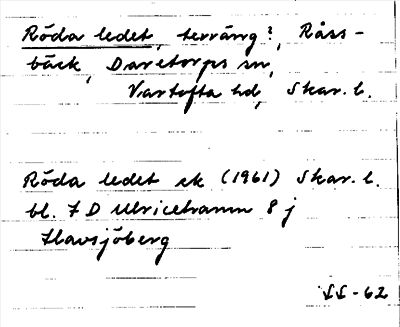 Röda ledet, terräng?, Råss-
bäck, Daretorps sn,
Vartofta hd, Skar. l.
Röda ledet ek (1961) Skar. l.
bl. 7 D Ulricehamn 8 j
Havsjöberg
SS-62